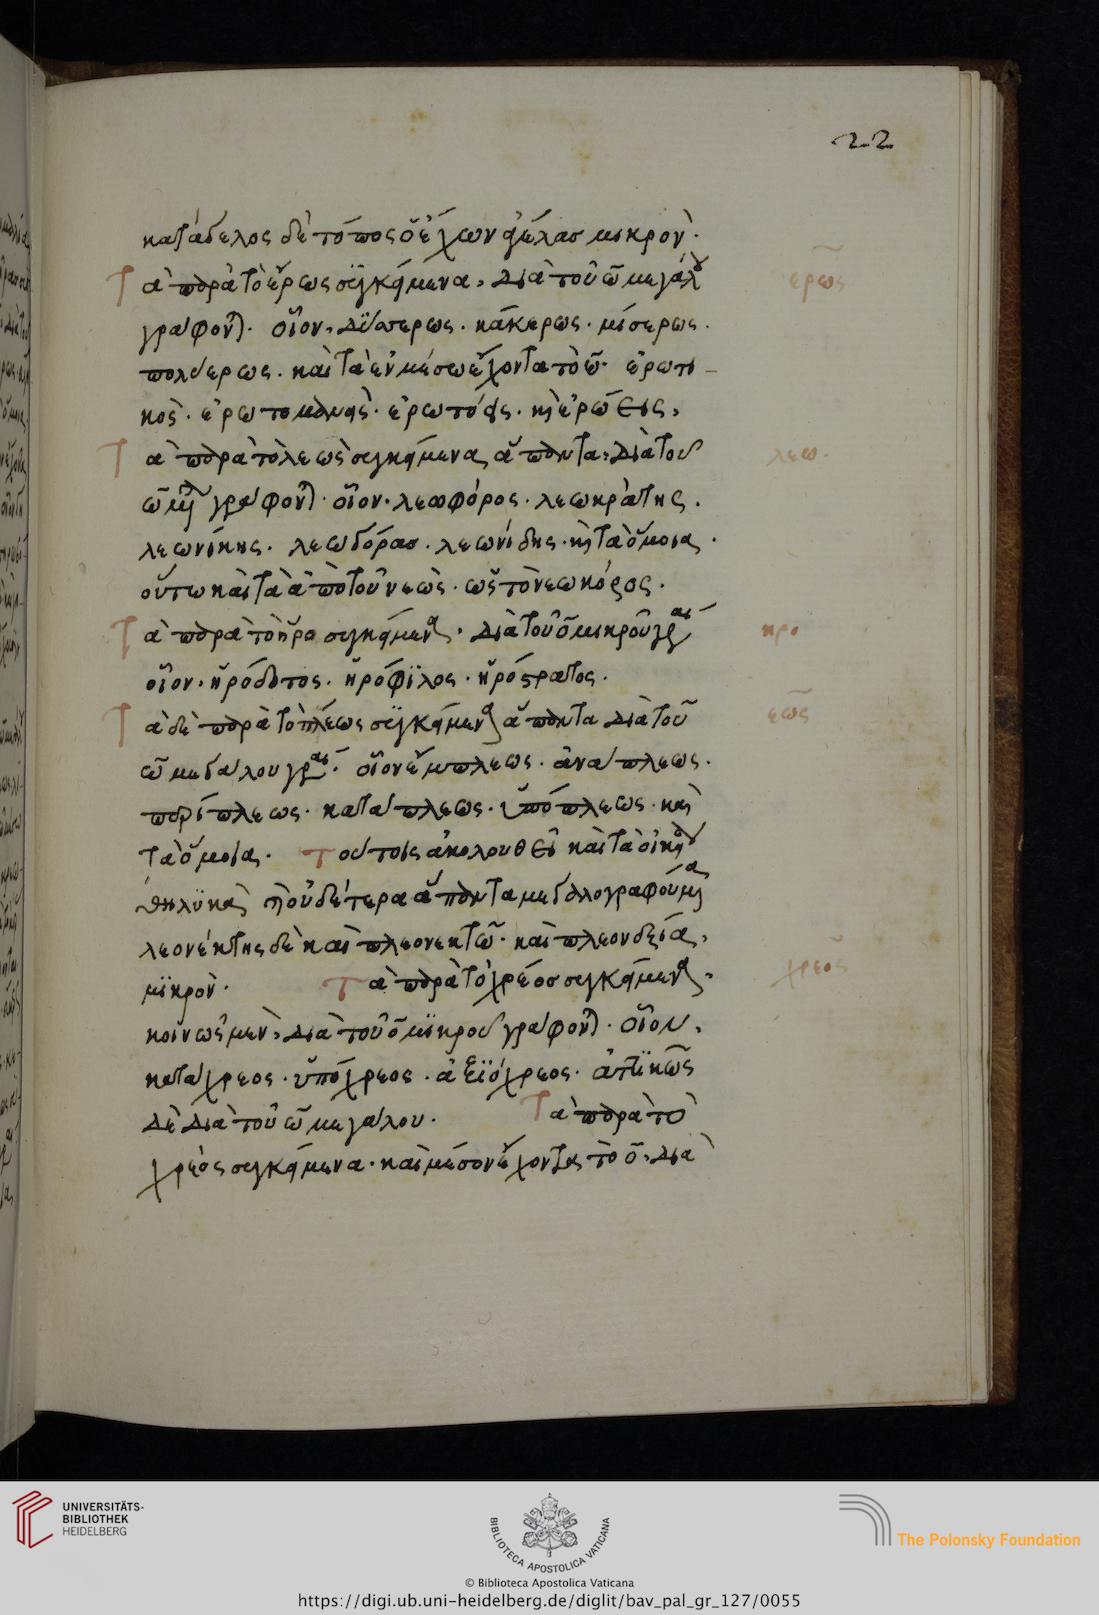 22
κατάδελος δὲ τόπος ὁ ἔχων μικρόν·
Τὰ παρὰ τὸ ἔρως συγκείμενα, διὰ τοῦ ω μεγάλου
ερως
γράφονται· οἷον, δύσερως· κάκερως· μίσερως·
πολύερως· καὶ τὰ ἐν μέσω ἔχοντα τὸ ω· ἐρωτι-
κός· ἐρωτομανής·
Τὰ παρὰ τὸ λεως συγκείμενα, ἅπαντα, διὰ τοῦ
λεω.
ω μεγάλου γράφονται· οἷον· λεωφόρος· λεωκράτης·
λεωνίκης· λεωδόρας· λεωνίδης· καὶ τὰ ὅμοια·
οὕτω καὶ τὰ ἀπὸ τοῦ νεώς· ὡς τὸ νεωκόρος·
Τὰ παρὰ τὸ ηρο συγκείμενα· διὰ τοῦ ο μικροῦ γράφεται
ηρο
οἷον· ἡρόδοτος· ἡρόφϊλος· ἡρόστρατος·
Τὰ δὲ παρὰ τὸ πλέως συγκείμενα ἅπαντα διὰ τοῦ
εως
ω μεγάλου γράφεται· οἷον ἔμπλεως· ἀνάπλεως·
περίπλεως· κατάπλεως· ὑπόπλεως· καὶ
τὰ ὅμοια· τούτοις ἀκολουθεῖ καὶ τὰ
θηλϋκὰ ἢ οὐδέτερα ἅπαντα μεγαλογραφούμενα
λεονέκτης δὲ καὶ πλεονεκτῶ· καὶ πλεονεξία,
μϊκρόν· Τὰ παρὰ τὸ χρέος συγκείμενα·
χρεος
κοινῶς μὲν, διὰ τοῦ ο μϊκροῦ γράφονται· οἷον,
κατάχρεος· ὑπόχρεος· ἀξϊόχρεος· ἀττϊκῶς
δὲ διὰ τοῦ ω μεγάλου· Τὰ παρὰ τὸ
χρεὸς συγκείμενα· καὶ μέσον ἔχοντα τὸ ο, διὰ
UNIVERSITÄTS-
BIBLIOTHEK
HEIDELBERG
BIBLIOTECA APOSTOLICA VATICANA
The Polonsky Foundation
© Biblioteca Apostolica Vaticana
https://digi.ub.uni-heidelberg.de/diglit/bav_pal_gr_127/0055